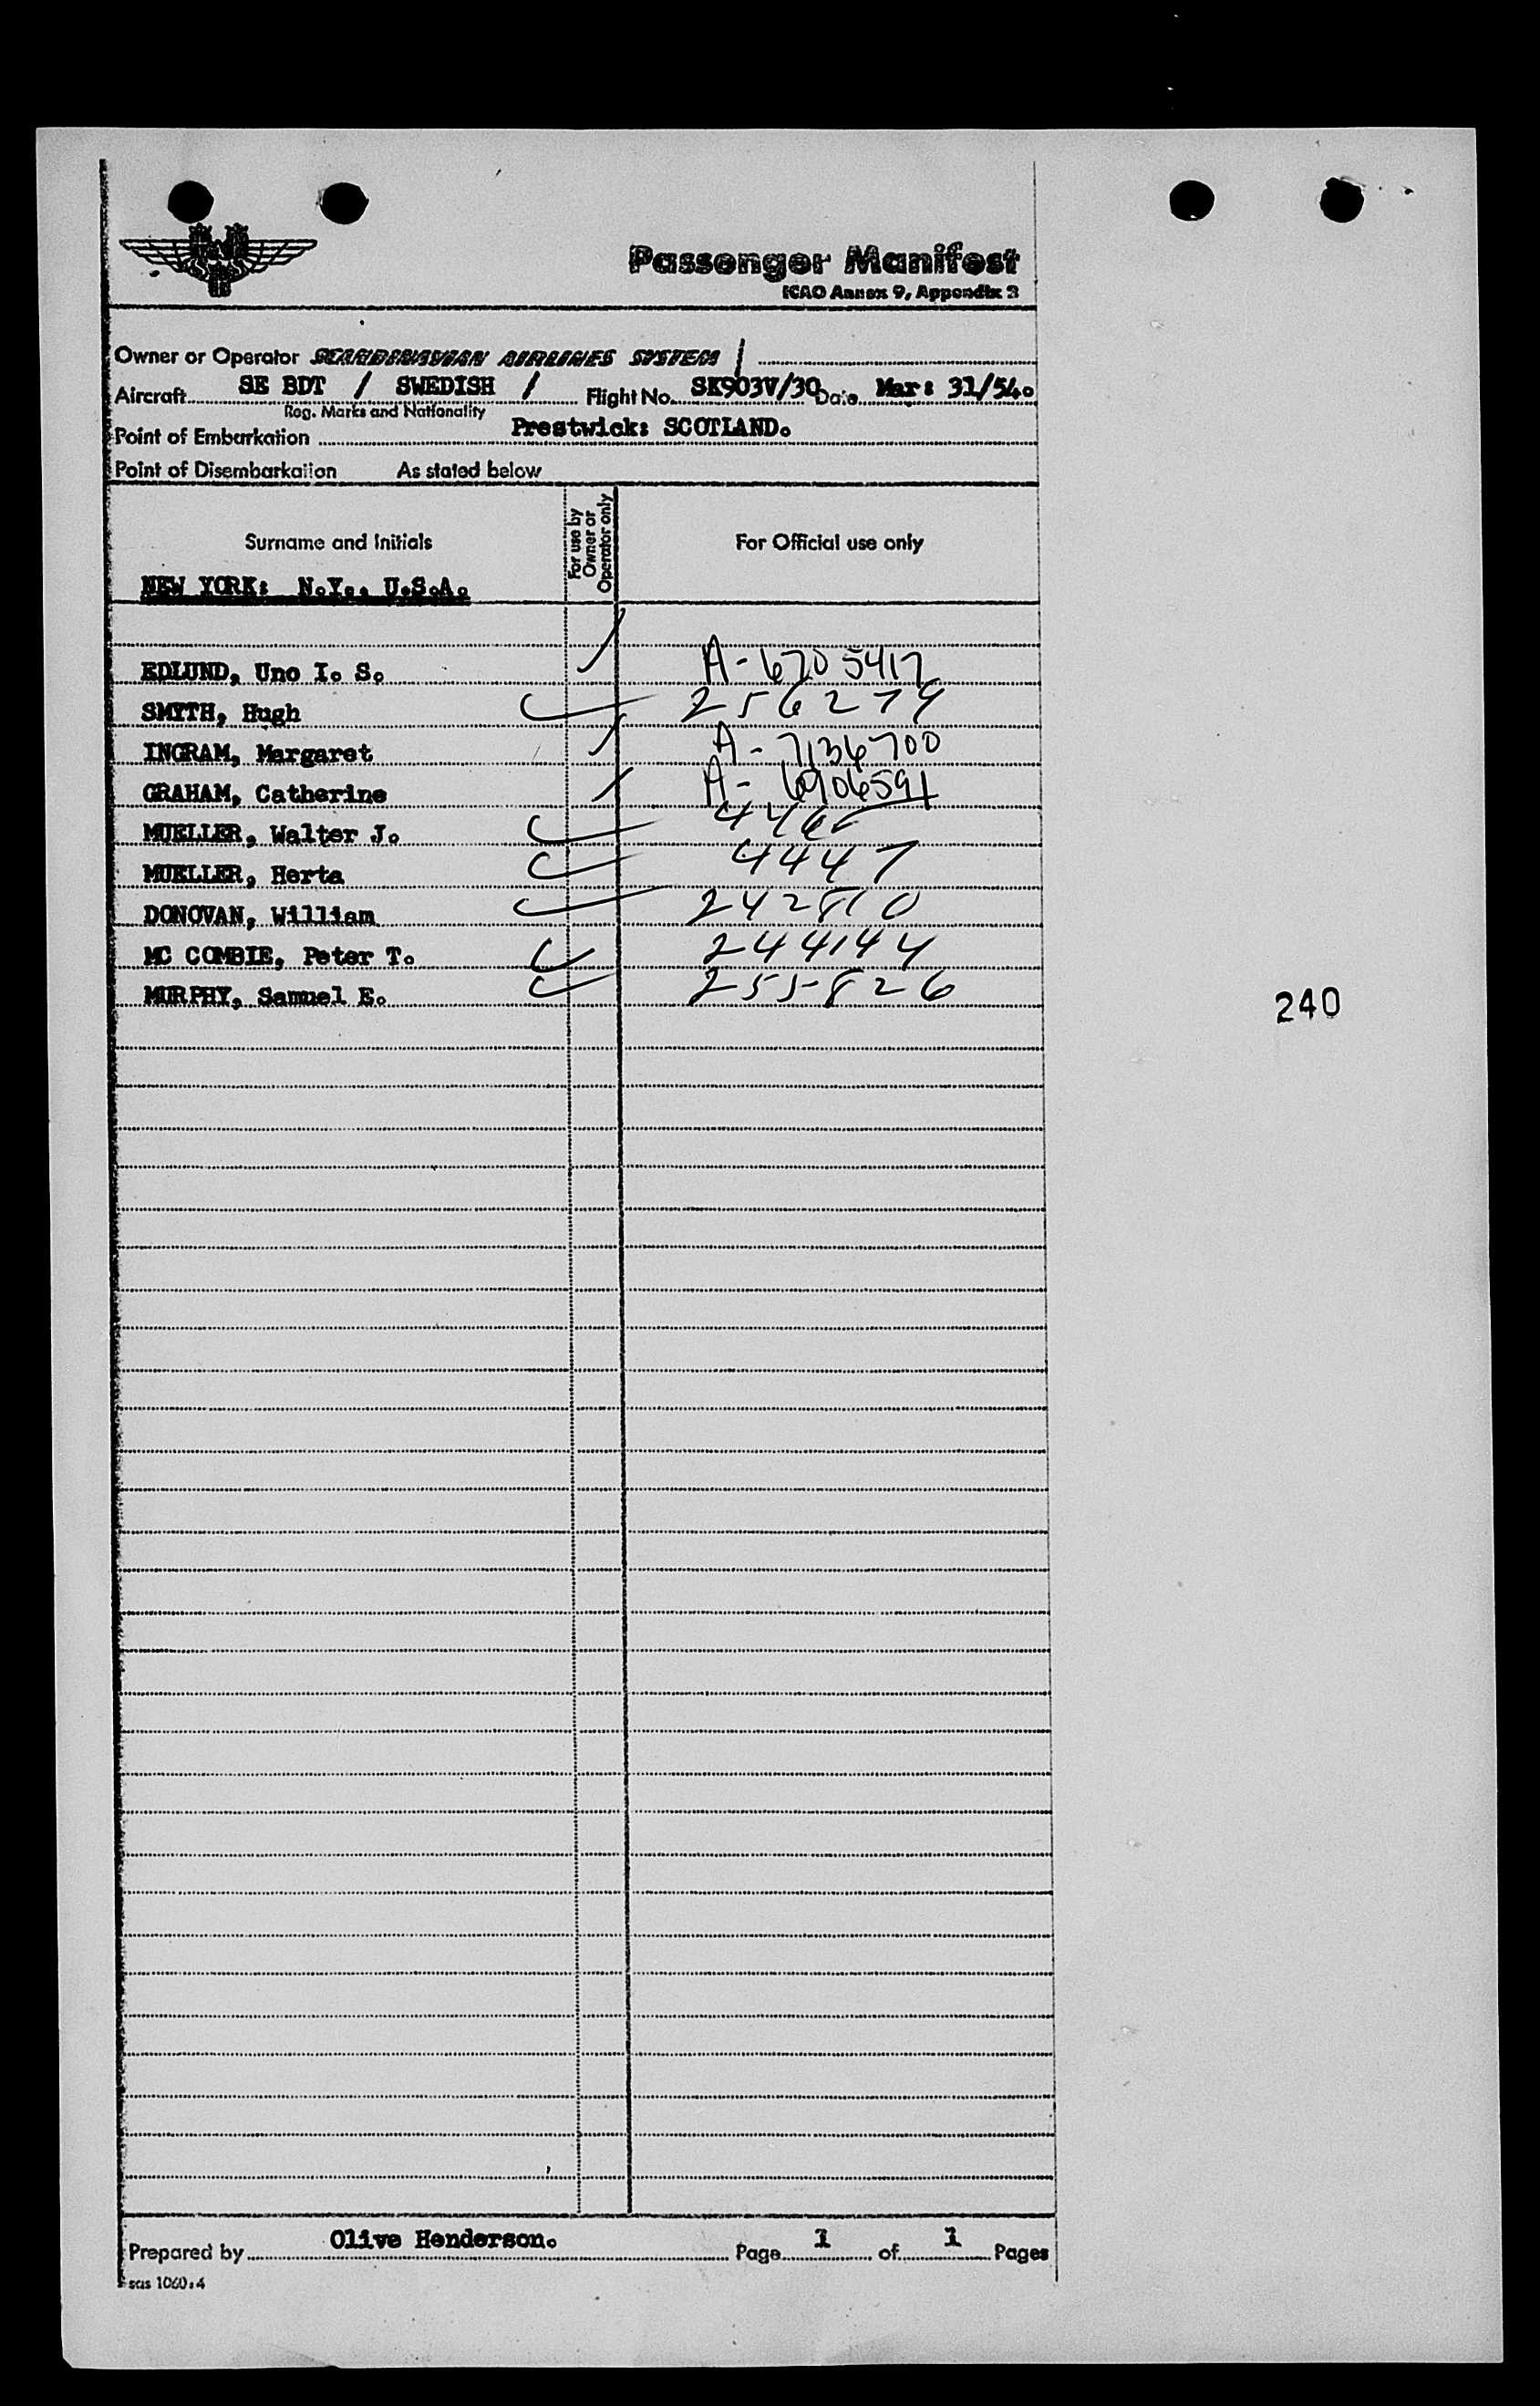 Passenger Manifest
ICAO Annex 9, Appendix 3
Owner or Operator SCANDINAVIAN AIRLINES SYSTEM /
Aircraft SE BDT / SWEDISH / Flight No. SK903V/30 Date Mar: 31/54.
Reg. Marks and Nationality
Point of Embarkation Prestwick: SCOTLAND.
Point of Disembarkation As stated below
Surname and Initials For use by Owner or Operator only For Official use only
NEW YORK: N.Y.. U.S.A.
EDLUND, Uno I. S. A-6705417
SMYTH, Hugh 256274
INGRAM, Margaret A-7136700
GRAHAM, Catherine A-6906591
MUELLER, Walter J.
MUELLER, Herta 4447
DONOVAN, William 242810
MC COMBIE, Peter T. 244144
MURPHY, Samuel E. 255826
240
Prepared by Olive Henderson. Page 1 of 1 Pages
sas 1060:4